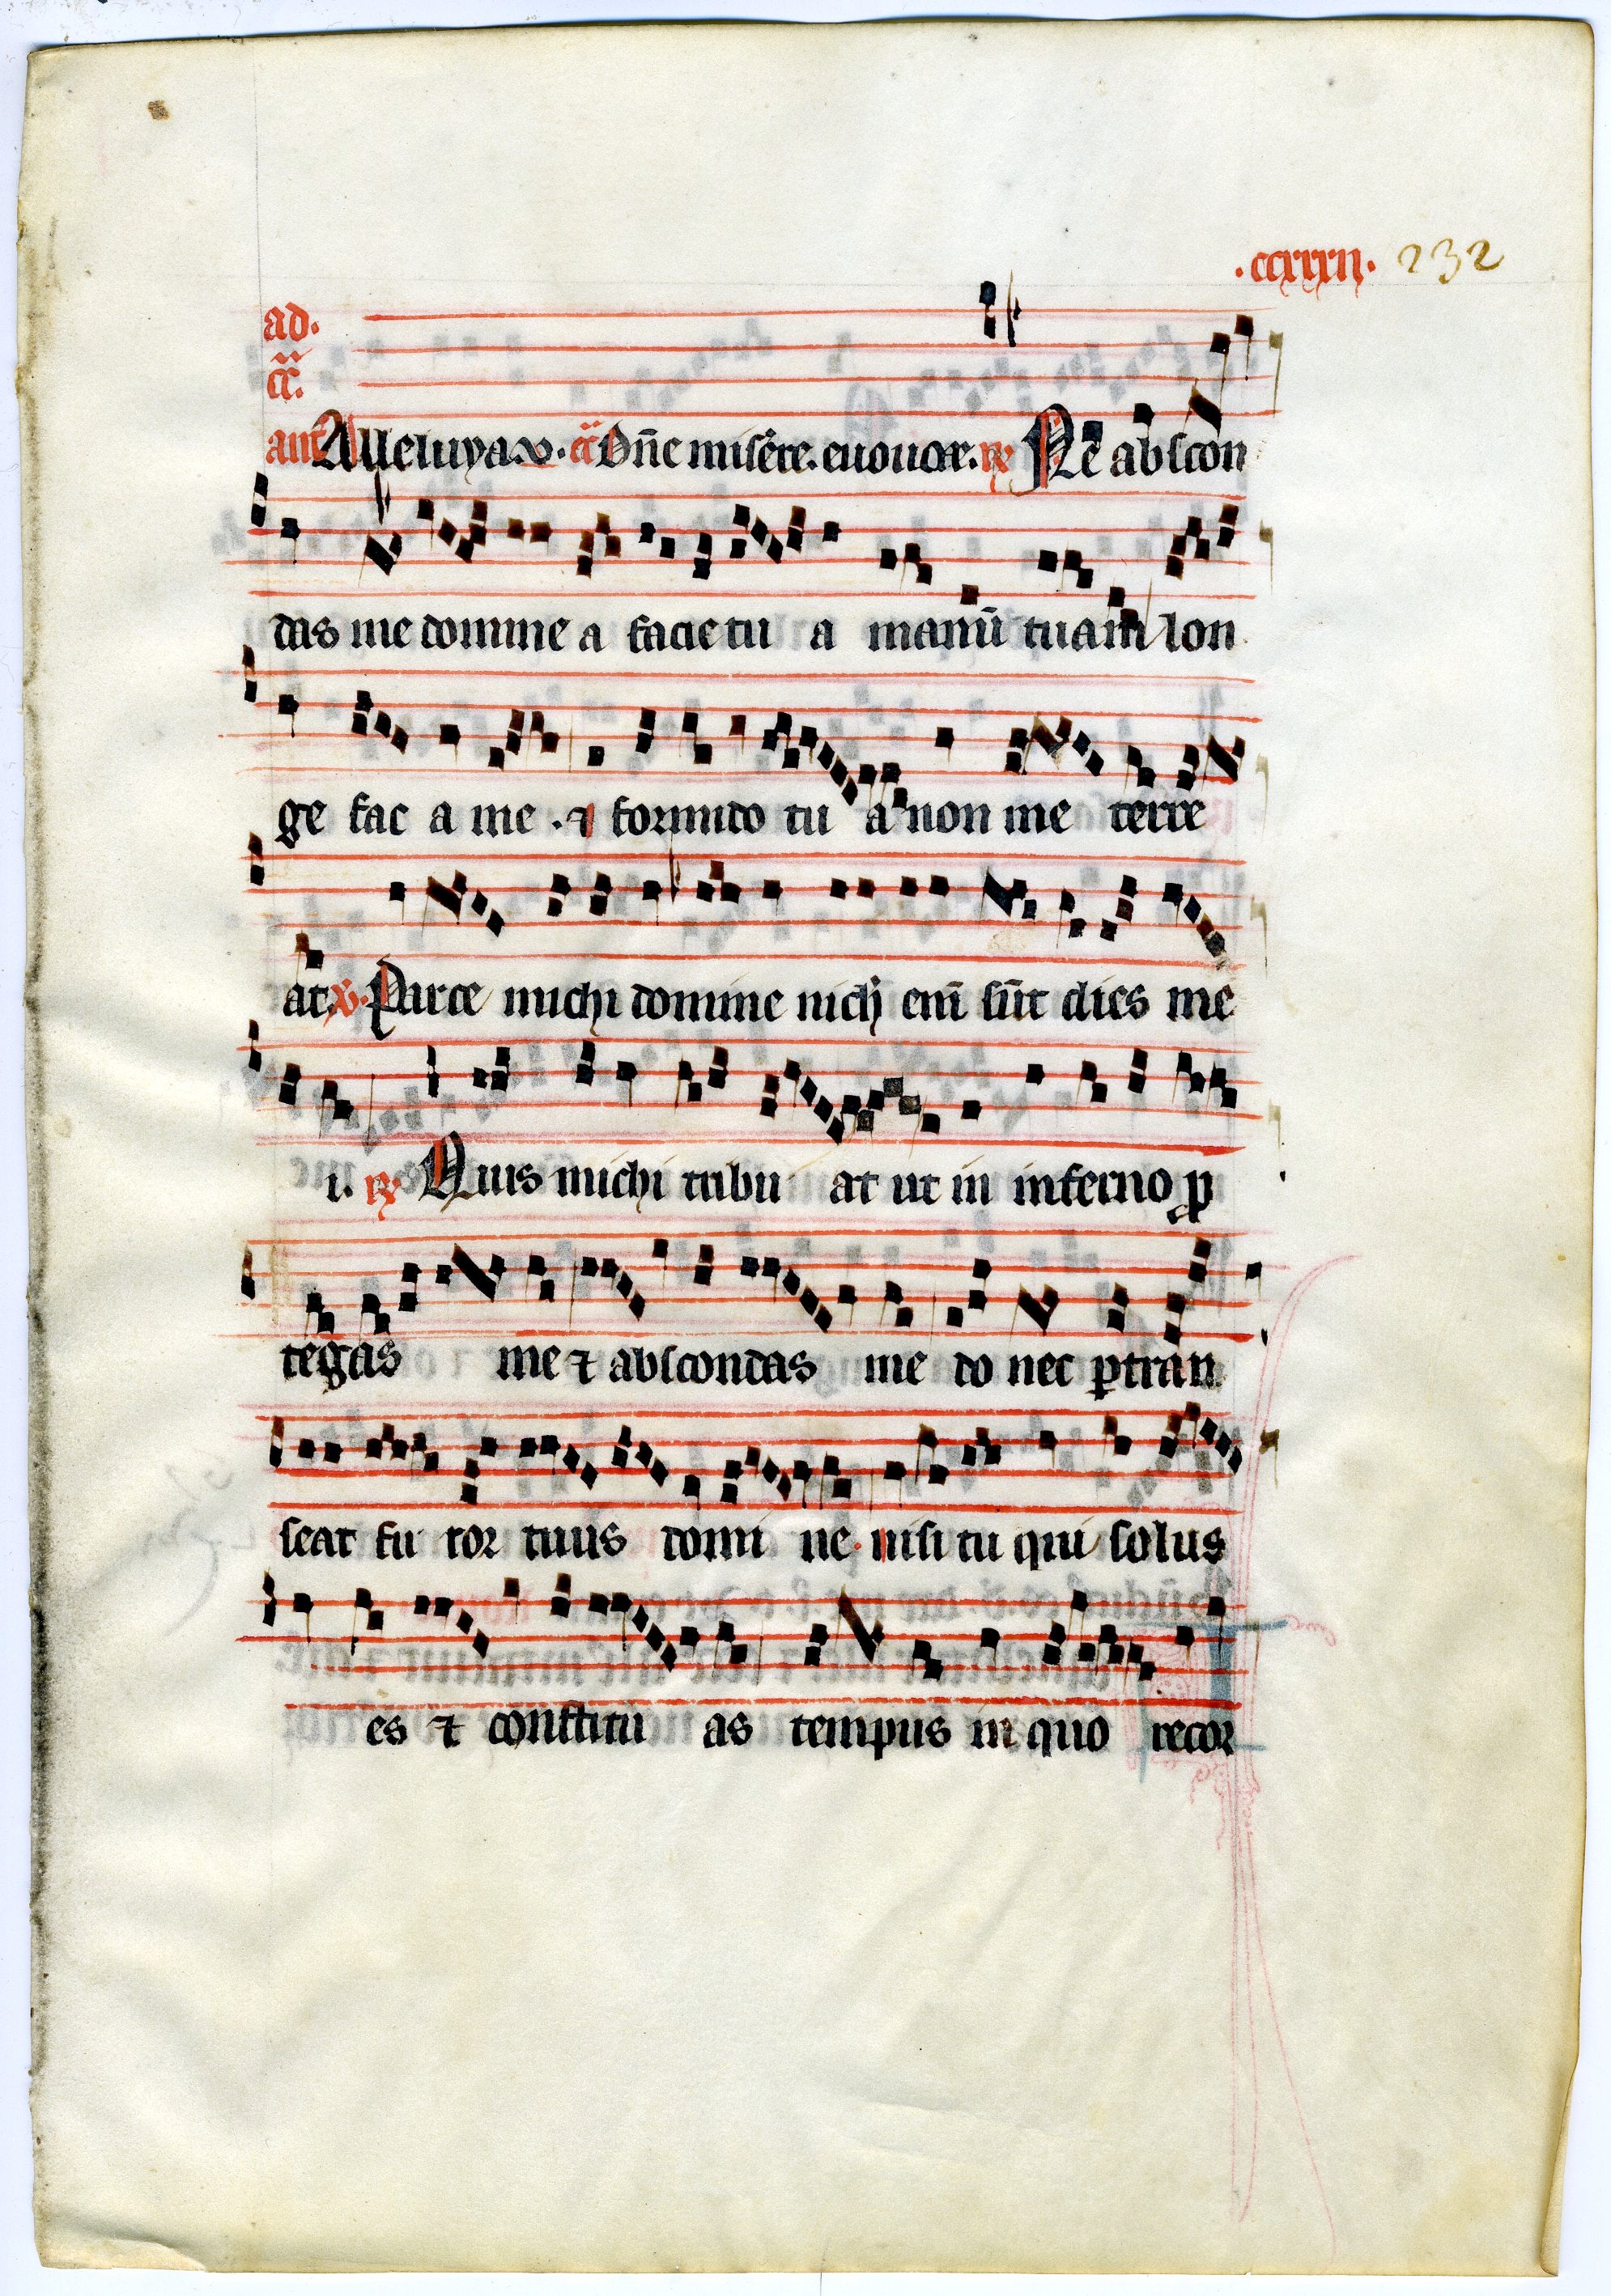 .ccxxxii. 232
ad.
cã.
ant Alleluya. v. cã Dñe miserere. euouae. R Ne abscon
das me domine a facie tu a manũ tuam lon
ge fac a me . et formido tu a non me terre
at v. Parce michi domine nichi enĩ sũt dies me
i. R Quis michi tribu at ut in inferno p
tegas me et abscondas me do nec ptran
seat fu ror tuus domi ne. nisi tu qui solus
es et constitu as tempus in quo recor